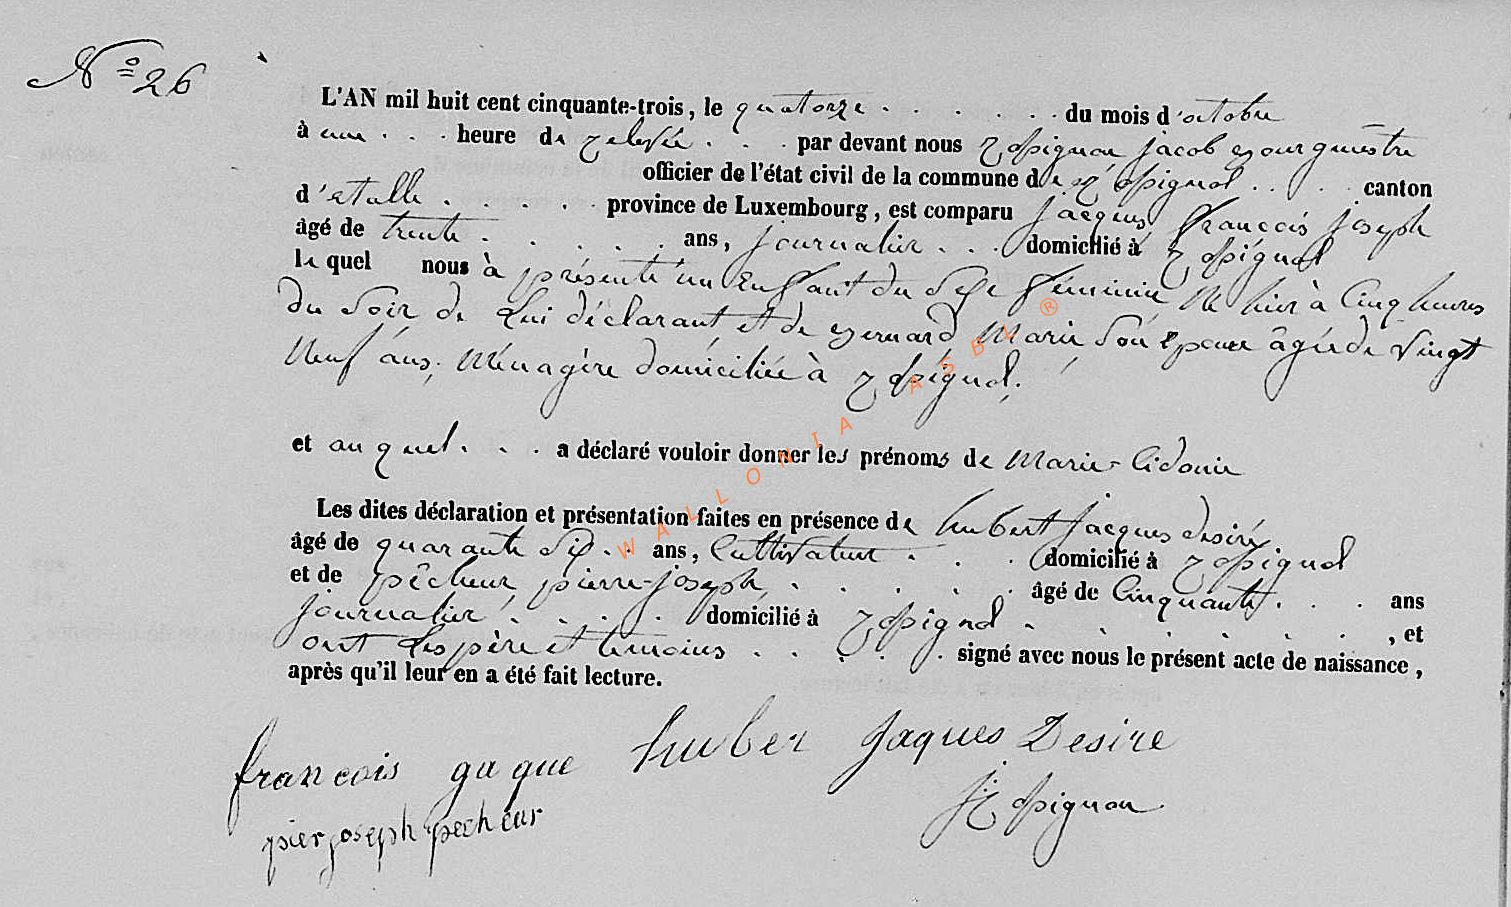 N° 26
L'AN mil huit cent cinquante-trois, le quatorze du mois d'octobre
à une heure de relevée par devant nous Rossignon jacob Bourguestre
officier de l'état civil de la commune de Rossignol canton
d'étalle province de Luxembourg, est comparu jacques françois joseph
âgé de trente ans, journalier domicilié à Rossignol
le quel nous à présenté un Enfant du Sexe féminin Né hier à Cinq heures
du Soir de Lui déclarant et de Bernard Marie Son épouse âgée de Vingt
Neuf ans, Ménagère domiciliée à Rossignol,
et au quel a déclaré vouloir donner les prénoms de Marie-Cidonie
Les dites déclaration et présentation faites en présence de hubert jacques desiré
âgé de quarante Six ans, Cultivateur domicilié à Rossignol
et de pêcheur pierre-joseph, âgé de Cinquante ans
journalier, domicilié à Rossignol , et
ont Les père et temoins signé avec nous le présent acte de naissance,
après qu'il leur en a été fait lecture.
francois gaque huber Jaques Desire
pier joseph pecheur J Rossignon
WALLONIA ASBL ®